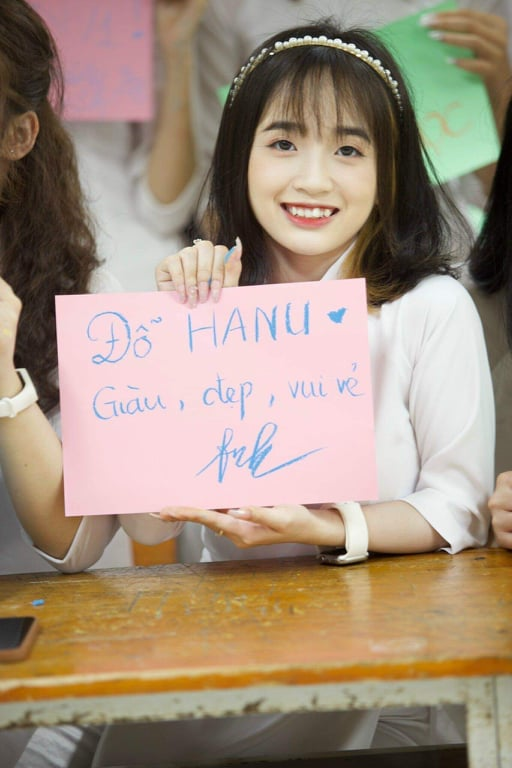 Đỗ HANU
Giàu, đẹp, vui vẻ